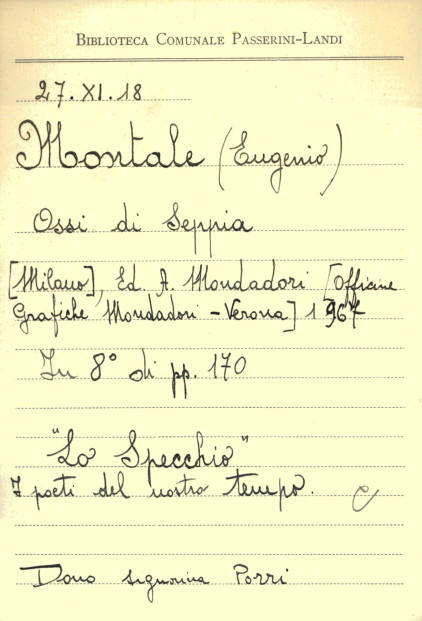 BIBLIOTECA COMUNALE PASSERINI-LANDI
27.XI.18
Montale (Eugenio)
Ossi di Seppia
[Milano], Ed. A. Mondadori [Officine
Grafiche Mondadori - Verona] 1967
In 8° di pp. 170
"Lo Specchio"
I poeti del nostro tempo.
C
Dono signorina Porri